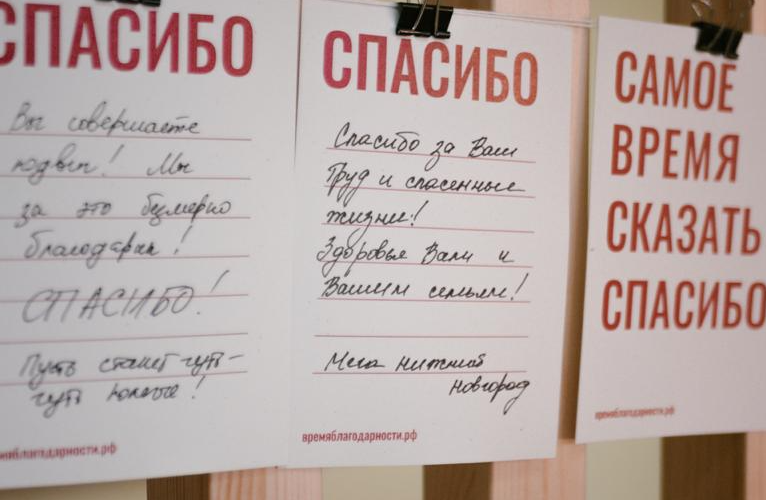 СПАСИБО
Вы совершаете
подвиг! Мы
за это безмерно
благодарны!
СПАСИБО!
Пусть станет чуть-
чуть
СПАСИБО
Спасибо за Ваш
Труд и спасенные
жизни!
Здоровья Вам и
Вашим семьям!
Мега Нижний
Новгород
времяблагодарности.рф
САМОЕ
ВРЕМЯ
СКАЗАТЬ
СПАСИБО
времяблагодарности.рф